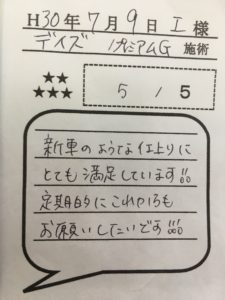 H30年7月9日 I 様
デイズ プレミアムG 施術
★★
★★★
5 / 5
新車のような仕上りに
とても満足しています!!
定期的にこれからも
お願いしたいです!!!